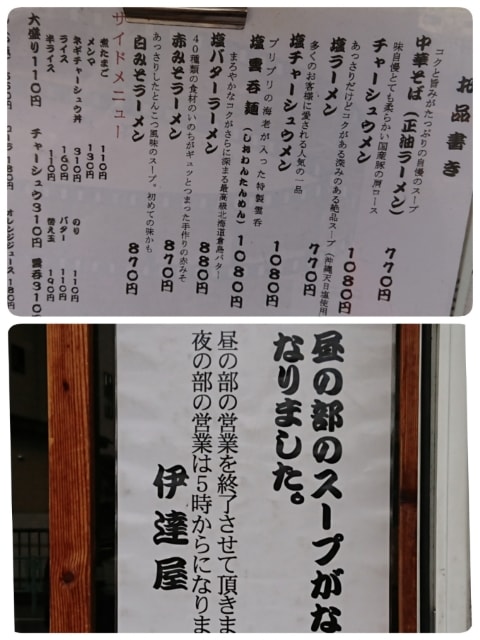 お品書き
コクと旨みがたっぷりの自慢のスープ
中華そば(正油ラーメン) 770円
味自慢とても柔らかい国産豚の肩ロース
チャーシュウメン 1080円
あっさりだけどコクがある深みのある絶品スープ(沖縄天日塩使用)
塩ラーメン 770円
多くのお客様に愛される人気の一品
塩チャーシュウメン 1080円
プリプリの海老が入った特製雲呑
塩雲呑麺(しおわんたんめん) 1080円
まろやかなコクがさらに深まる最高級北海道倉島バター
塩バターラーメン 880円
40種類の食材のいのちがギュッとつまった手作りの赤みそ
赤みそラーメン 870円
あっさりしたとんこつ風味のスープ。初めての味かも
白みそラーメン 870円
サイドメニュー
煮たまご 110円
メンマ 130円
ネギチャーシュウ丼 310円
ライス 160円
半ライス 110円
のり 110円
バター 110円
替え玉 190円
大盛り110円
チャーシュウ310円
雲呑310円
コーラ 180円
オレンジジュース 180円
昼の部のスープがな
なりました。
昼の部の営業を終了させて頂きま
夜の部の営業は5時からになりま
伊達屋